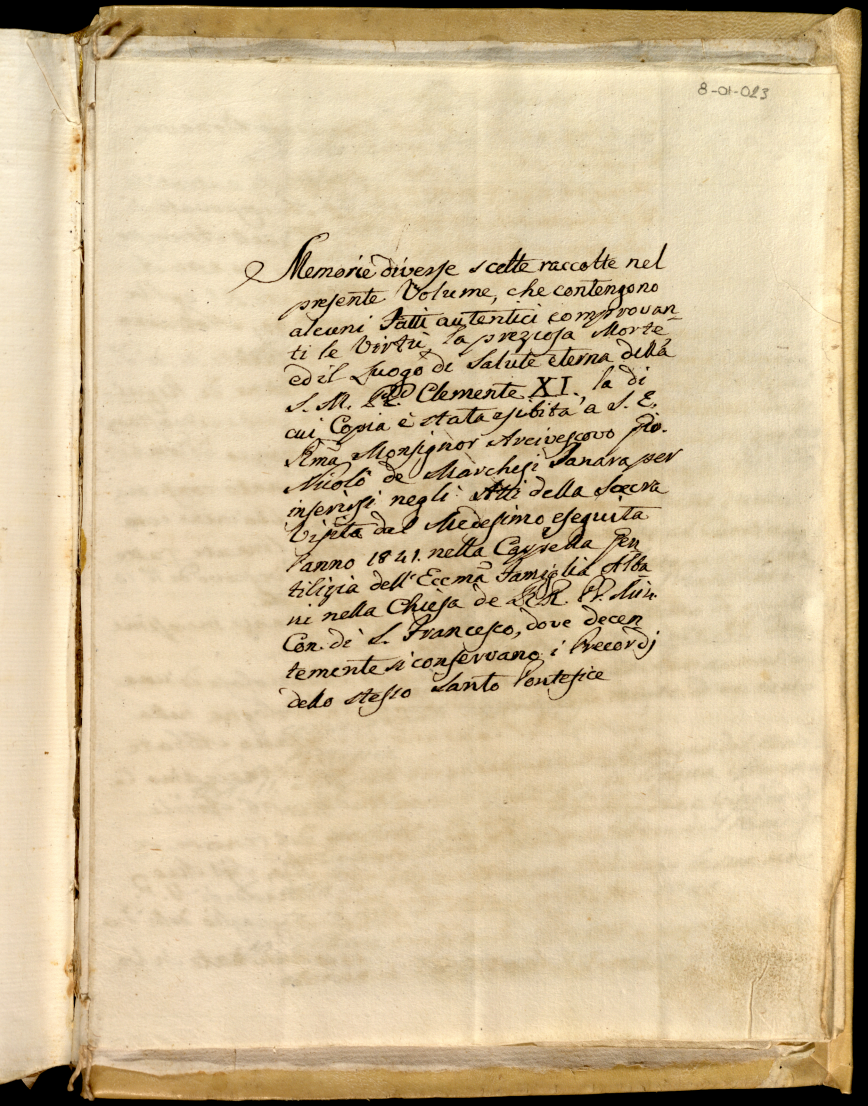 8-01-023
Memorie diverse scelte raccolte nel
presente Volume, che contengono
alcuni Fatti autentici comprovan
ti le Virtù, la preziosa Morte
ed il Luogo di Salute eterna della
S. M. Clemente XI., la di
cui Copia è stata esibita a S. E.
Rma Monsignor Arcivescovo Gio.
Nicolò de Marchesi Tanara per
inserirsi negli Atti della Sacra
Visita dal Medesimo eseguita
l'anno 1841. nella Cappella Gen
tilizia dell'Eccma Famiglia Alba
ni nella Chiesa de RR. PP. Min.
Con. di S. Francesco, dove decen
temente si conservano i Precordj
dello stesso Santo Pontefice